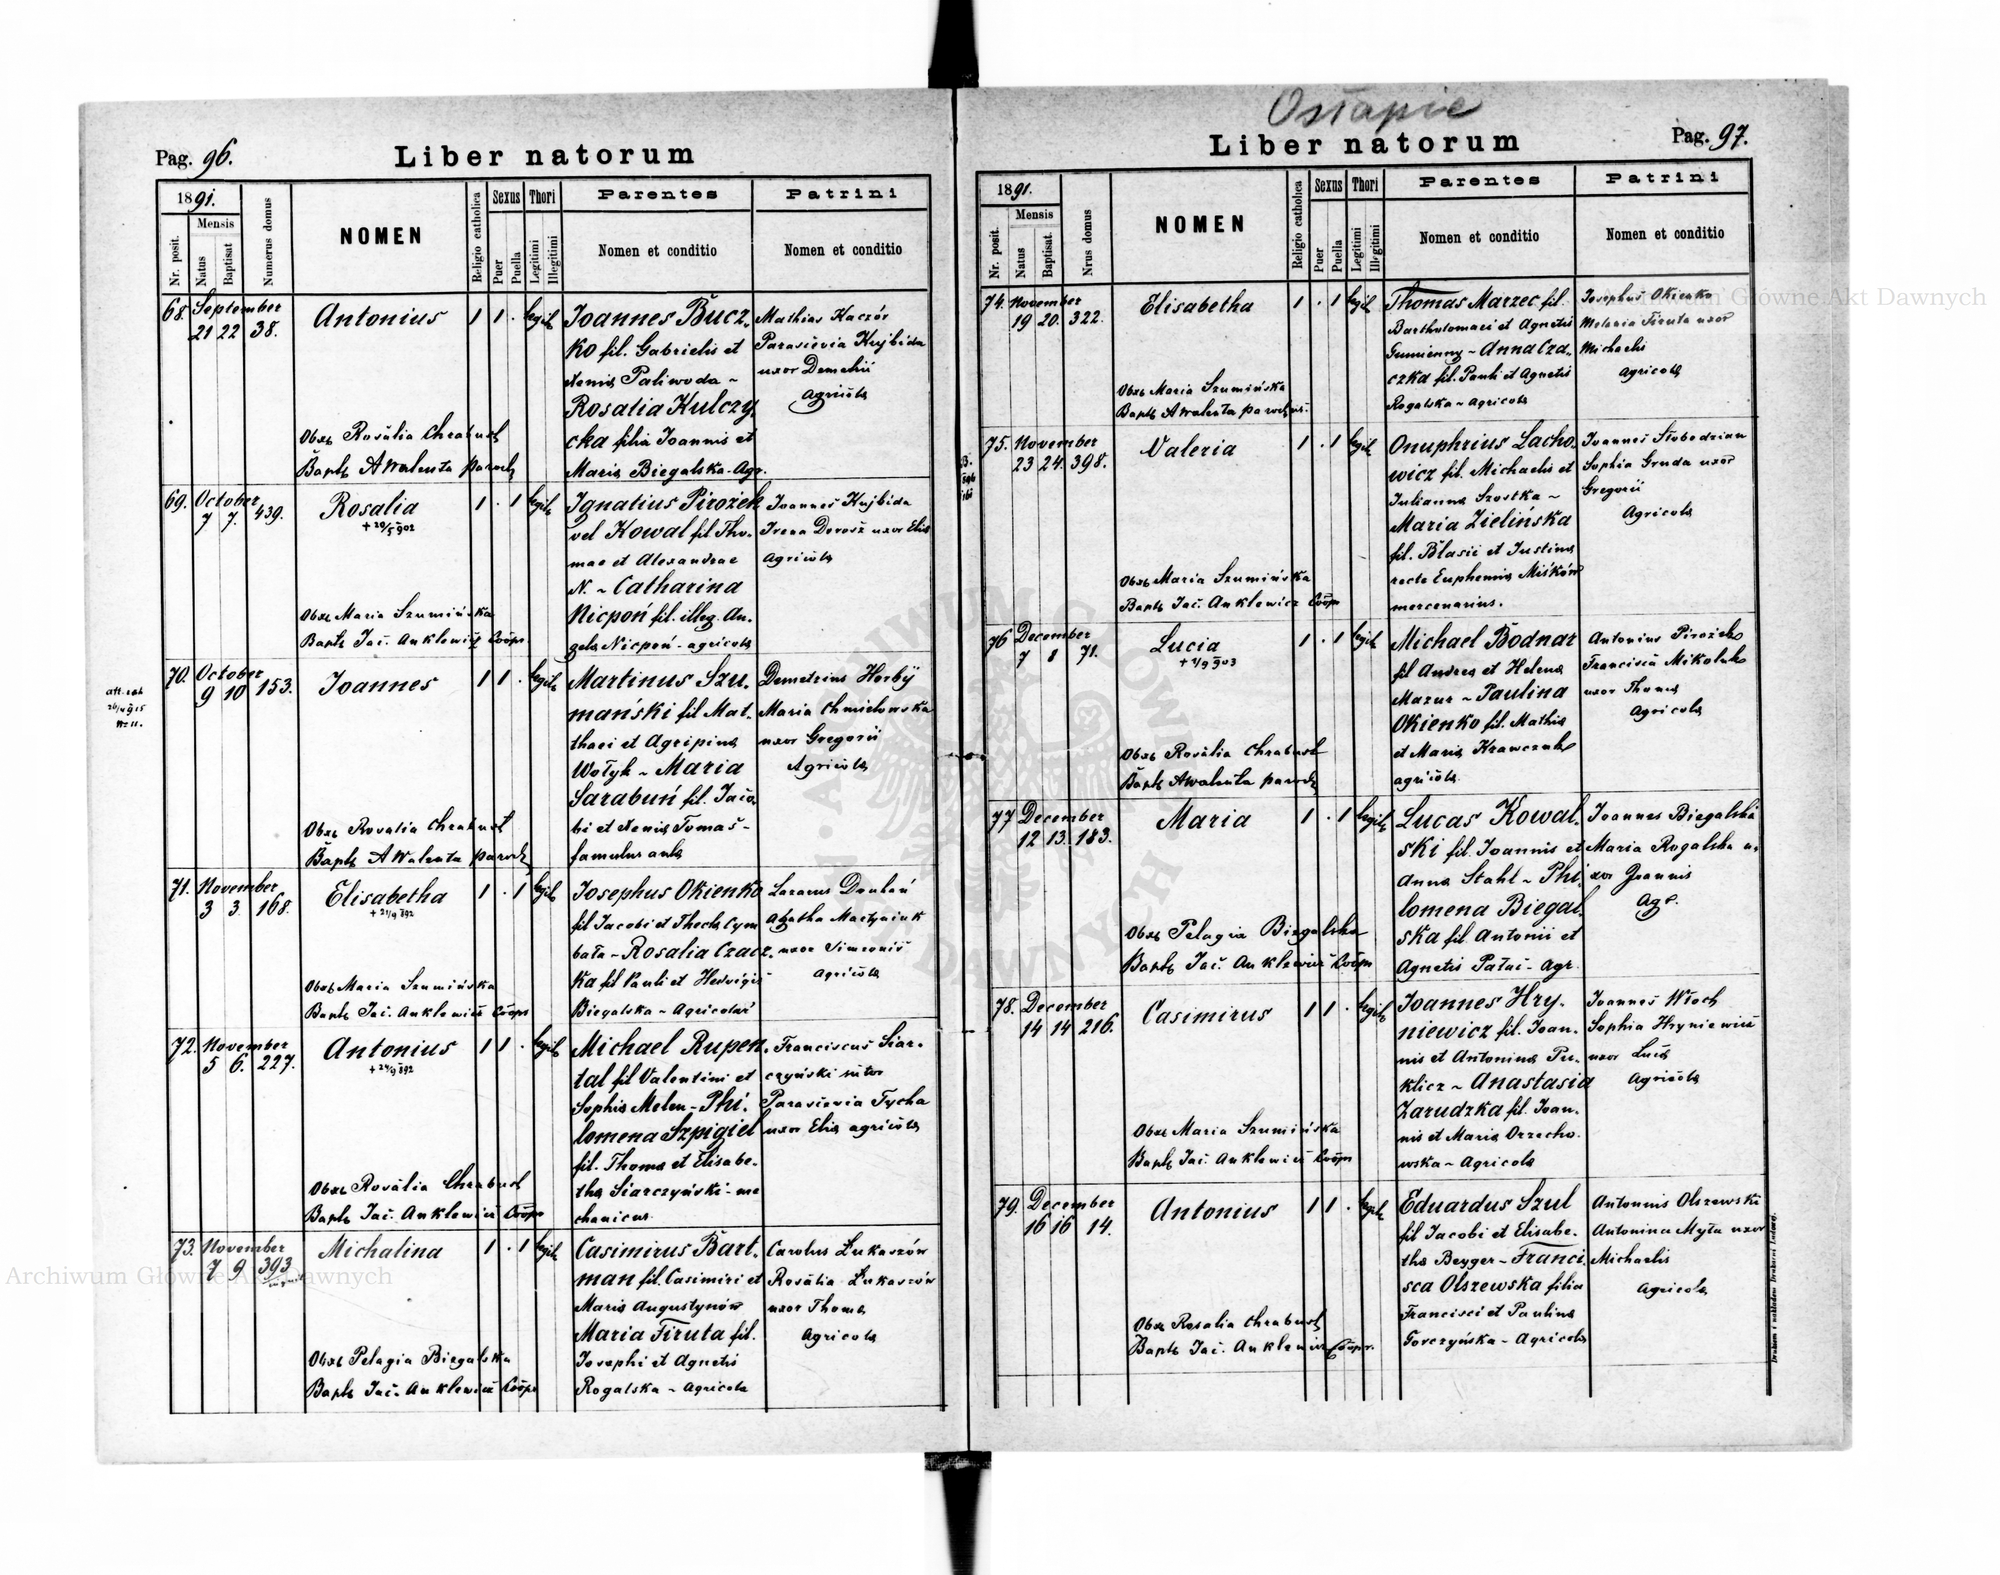 Ostapie
Pag. 96.
Liber natorum
1891.
Mensis
Nr. posit.
Natus
Baptisat
Numerus domus
NOMEN
Religio catholica
Sexus
Puer
Puella
Thori
Legitimi
Illegitimi
Parentes
Nomen et conditio
Patrini
Nomen et conditio
68. September
21 22 38.
Antonius
1 1 . legit
Obst Rosalia Chrabust
Bapt A Walenta paroch
Joannes Bucz-
ko fil. Gabrielis et
Xenia Paliwoda ~
Rosalia Kulczy
cka filia Joannis et
Maria Biegalska - Agr.
Mathias Kaczór
Parascevia Kujbida
uxor Demetrii
agricola
69. October
7 7. 439.
Rosalia
+ 20/5 902
1 . 1 legit
Obst Maria Szumińska
Bapt Jac. Anklewicz Coop.
Ignatius Pirożek
vel Kowal fil Tho-
mae et Alexandrae
N. ~ Catharina
Nicpoń fil. illeg. An-
gela Nicpoń - agricola
Joannes Kujbida
Irena Dorosz uxor Elia
agricola
70. October
9 10 153.
Joannes
1 1 . legit
Obst Rosalia Chrabust
Bapt A Walenta paroch
Martinus Szu-
mański fil Mat-
thaei et Agripina
Wołyk ~ Maria
Sarabuń fil. Jaco
bi et Xenia Tomas -
famulus aula
Demetrius Horbij
Maria Chmielowska
uxor Gregorii
Agricola
71. November
3 3. 168.
Elisabetha
+ 21/9 892
1 . 1 legit
Obst Maria Szumińska
Bapt Jac. Anklewicz Coops
Josephus Okienko
fil Jacobi et Thecla Cym
bała ~ Rosalia Czacz-
ka fil Pauli et Hedvigis
Biegalska ~ Agricolae
Agatha Martyniuk
uxor Simeonis
agricola
72. November
5 6. 227.
Antonius
+ 24/9 892
1 1 . legit
Obst Rosalia Chrabust
Bapt Jac. Anklewicz Coops
Michael Rupen-
tal fil Valentini et
Sophia Melen - Phi-
lomena Szpigiel
fil. Thoma et Elisabe-
tha Siarczyński - me
chanicus
Franciscus Siar-
czyński sutor
Parascevia Tycha
uxor Elia agricola
73. November
7 9 393
Michalina
1 . 1 legit
Obst Pelagia Biegalska
Bapt Jac. Anklewicz Coops
Casimirus Bart-
man fil. Casimiri et
Maria Augustynów
Maria Firuta fil.
Josephi et Agnetis
Rogalska ~ agricola
Carolus Łukaszów
Rosalia Łukaszów
uxor Thoma
agricola
Pag. 97.
Liber natorum
1891.
Mensis
Nr. posit.
Natus
Baptisat.
Nrus domus
NOMEN
Religio catholica
Sexus
Puer
Puella
Thori
Legitimi
Illegitimi
Parentes
Nomen et conditio
Patrini
Nomen et conditio
74. November
19 20. 322.
Elisabetha
1 . 1 legit
Obst Maria Szumińska
Bapt A Walenta paroch
Thomas Marzec fil.
Bartholomaei et Agnetis
Gumienny ~ Anna Cza-
czka fil. Pauli et Agnetis
Rogalska ~ agricola
Josephus Okienko
Melania Firuta uxor
Michaelis
agricola
75. November
23 24. 398.
Valeria
1 . 1 legit
Obst Maria Szumińska
Bapt Jac. Anklewicz Coop
Onuphrius Lacho-
wicz fil. Michaelis et
Julianna Szostka ~
Maria Zielińska
fil. Blasii et Justina
recte Euphemia Miśków
mercenarius.
Joannes Słobodzian
Sophia Gruda uxor
Gregorii
Agricola
76 December
7 8 71.
Lucia
+ 4/9 903
1 . 1 legit
Obst Rosalia Chrabust
Bapt A Walenta paroch
Michael Bodnar
fil Andrea et Helena
Mazur ~ Paulina
Okienko fil. Mathia
et Maria Krawczuk
agricola
Antonius Pirożek
Francisca Mikoluk
uxor Thoma
Agricola
77 December
12 13. 183.
Maria
1 . 1 legit
Obst Pelagia Biegalska
Bapt Jac. Anklewicz Coop
Lucas Kowal-
ski fil. Joannis et
Anna Stahl ~ Phi-
lomena Biegal-
ska fil Antonii et
Agnetis Pałac - Agr.
Joannes Biegalski
Maria Rogalska u-
xor Joannis
Agr.
78. December
14 14 216.
Casimirus
1 1 . legit
Obst Maria Szumińska
Bapt Jac. Anklewicz Coop
Joannes Hry-
niewicz fil. Joan-
nis et Antonina Pu-
klicz ~ Anastasia
Zarudzka fil. Joan-
nis et Maria Orzecho-
wska ~ Agricola
Joannes Włoch
Sophia Hryniewicz
uxor Luca
Agricola
79. December
16 16 14.
Antonius
1 1 . legit
Obst Rosalia Chrabust
Bapt Jac. Anklewicz Coops.
Eduardus Szul
fil Jacobi et Elisabe-
tha Beyger ~ Franci-
sca Olszewska filia
Francisci et Paulina
Gorczyńska ~ Agricola
Antonius Olszewski
Antonina Myta uxor
Michaelis
Agricola
Drukiem i nakładem Drukarni Ludowej.
Archiwum Główne Akt Dawnych
Archiwum Główne Akt Dawnych
ARCHIWUM GŁÓWNE AKT DAWNYCH